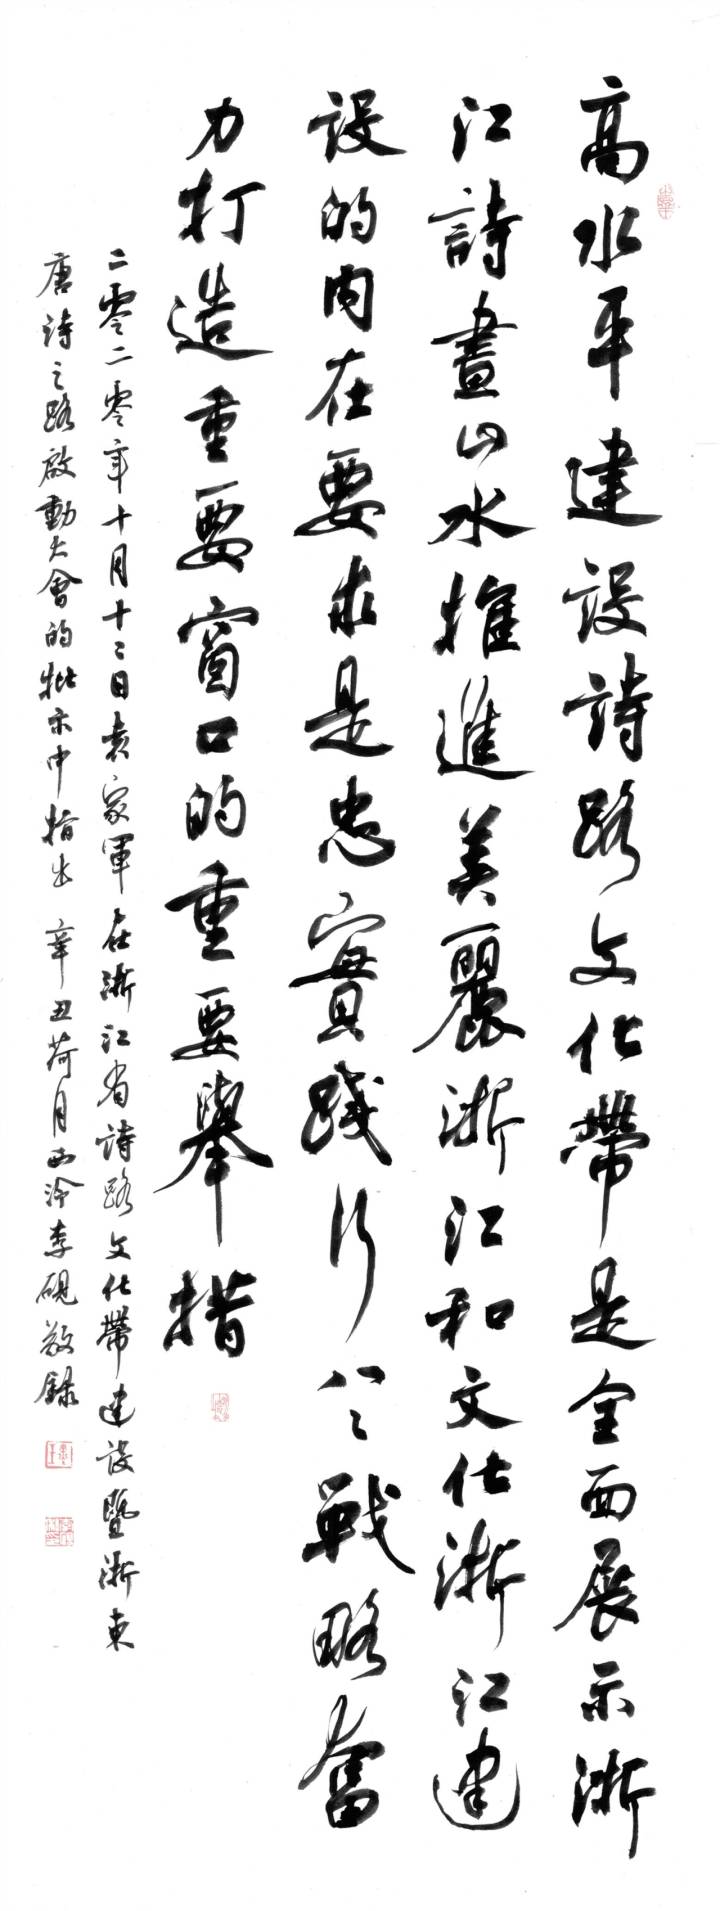 高水平建設詩路文化帶是全面展示浙
江詩畫山水推進美麗浙江和文化浙江建
設的内在要求是忠實踐行八八戰略奮
力打造重要窗口的重要舉措
二零二零年十月十二日袁家軍在浙江省詩路文化帶建設暨浙東
唐詩之路啟動大會的批示中指出 辛丑荷月西泠李硯敬錄